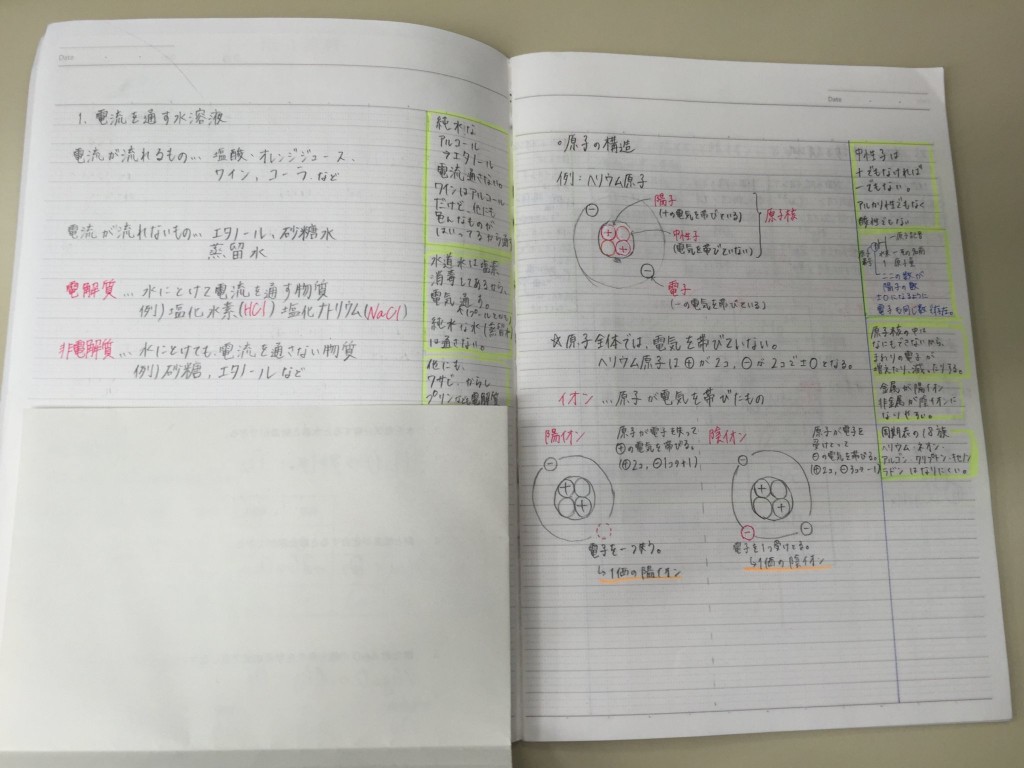 Date
1. 電流を通す水溶液
電流が流れるもの… 塩酸・オレンジジュース、
ワイン、コーラ、など
電流が流れないもの… エタノール、砂糖水
蒸留水
電解質 … 水にとけて電流を通す物質
例) 塩化水素(HCl) 塩化ナトリウム(NaCl)
非電解質 … 水にとけても、電流を通さない物質
例) 砂糖、エタノール など
純水な
アルコール
エタノール
電流通さない。
ワインはアルコール
だけど、他にも
色んなものが
はいってるから通
水道水は塩素
消毒してあるから、
電気通る。
純粋な水(蒸留水)
は通さない。
他にも、
ワサビ、からし
プリンなら電解質
Date
○原子の構造
例：ヘリウム原子
陽子
(+の電気を帯びている)
中性子
(電気を帯びていない)
原子核
電子
(−の電気を帯びている)
☆原子全体では、電気を帯びていない。
ヘリウム原子は⊕が2コ、⊖が2コで±0となる。
イオン … 原子が電気を帯びたもの
陽イオン
原子が電子を失って
⊕の電気を帯びる。
(⊕2コ、⊖1コ→+1)
電子を一つ失う。
↳1価の陽イオン
陰イオン
原子が電子を
受けとって
⊖の電気を帯びる。
(⊕2コ、⊖3コ→−1)
電子を1つ受けとる。
↳1価の陰イオン
中性子は
+でもなければ
−でもない。
アルカリ性でもなく
酸性でもない
原子記号
原子量
ここの数が
陽子の数
±0になるように
電子も同じ数存在。
原子核の中は
なにもできないから、
まわりの電子が
増えたり、減ったりする。
金属が陽イオン
非金属が陰イオンに
なりやすい。
周期表の18族
ヘリウム・ネオン・
アルゴン・クリプトン・キセノン
ラドンはなりにくい。